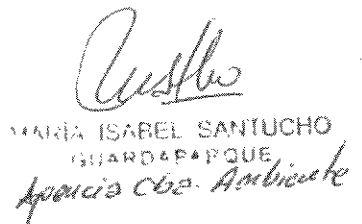 MARIA ISABEL SANTUCHO
GUARDAPARQUE
Agencia Cba. Ambiente